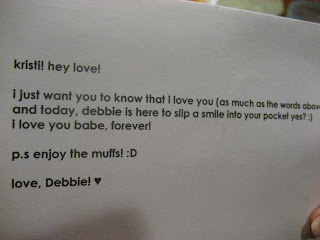 kristi! hey love!
i just want you to know that i love you (as much as the words above
and today, debbie is here to slip a smile into your pocket yes? :)
i love you babe, forever!
p.s enjoy the muffs! :D
love, Debbie! ♥